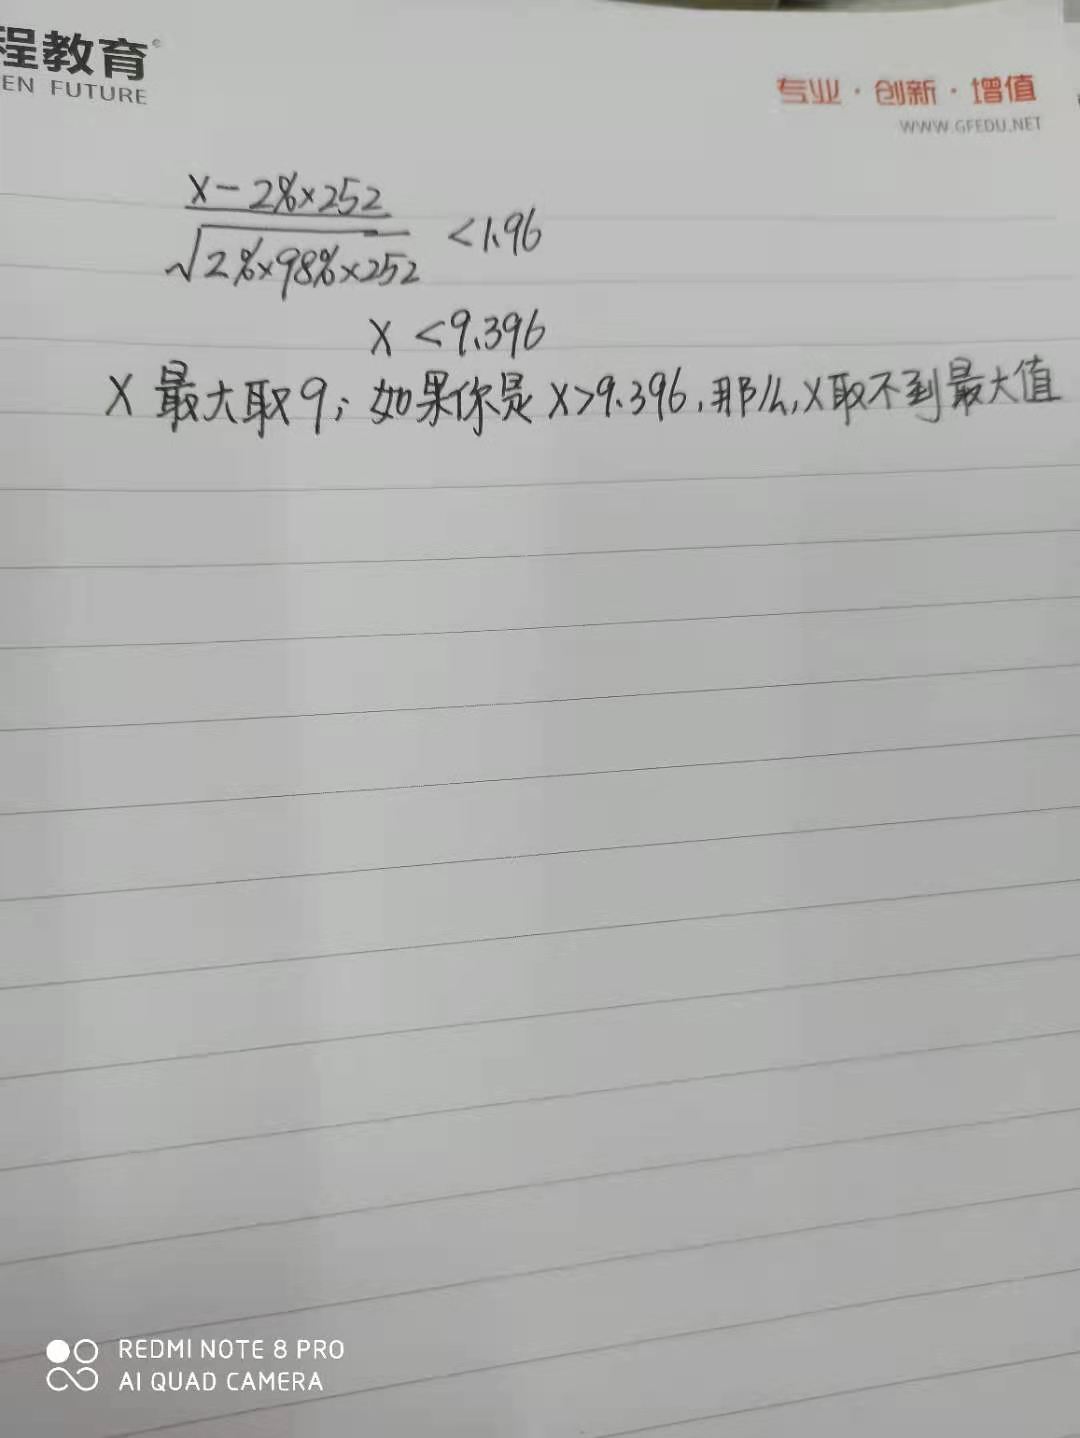 程教育
EN FUTURE
专业·创新·增值
WWW.GFEDU.NET
x-2%×252
√2%×98%×252 <1.96
x <9.396
x 最大取9；如果你是x>9.396,那么,x取不到最大值
REDMI NOTE 8 PRO
AI QUAD CAMERA